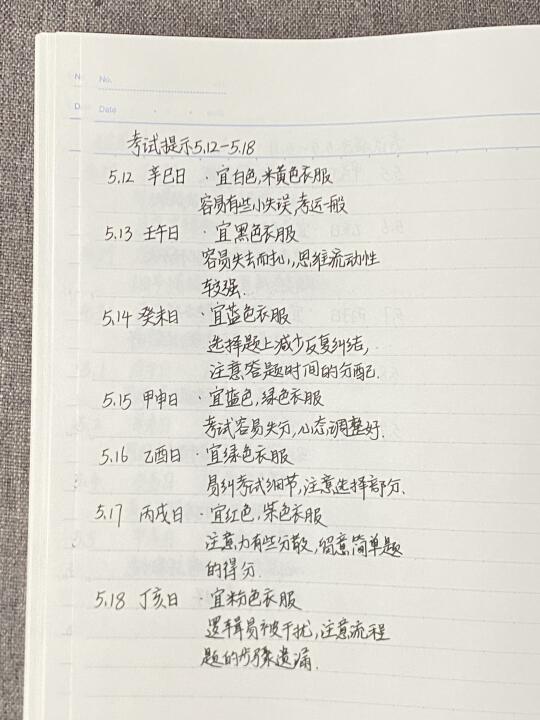 No.
Date
考试提示5.12-5.18
5.12 辛巳日 ·宜白色,米黄色衣服
容易有些小失误,考运一般
5.13 壬午日 ·宜黑色衣服
容易失去耐心,思维流动性
较强.
5.14 癸未日 ·宜蓝色衣服
选择题上减少反复纠结,
注意答题时间的分配.
5.15 甲申日 ·宜蓝色,绿色衣服
考试容易失分,心态调整好.
5.16 乙酉日 ·宜绿色衣服
易纠考试细节,注意选择部分.
5.17 丙戌日 ·宜红色,紫色衣服
注意力有些分散,留意简单题
的得分.
5.18 丁亥日 ·宜粉色衣服
逻辑易被干扰,注意流程
题的步骤遗漏.